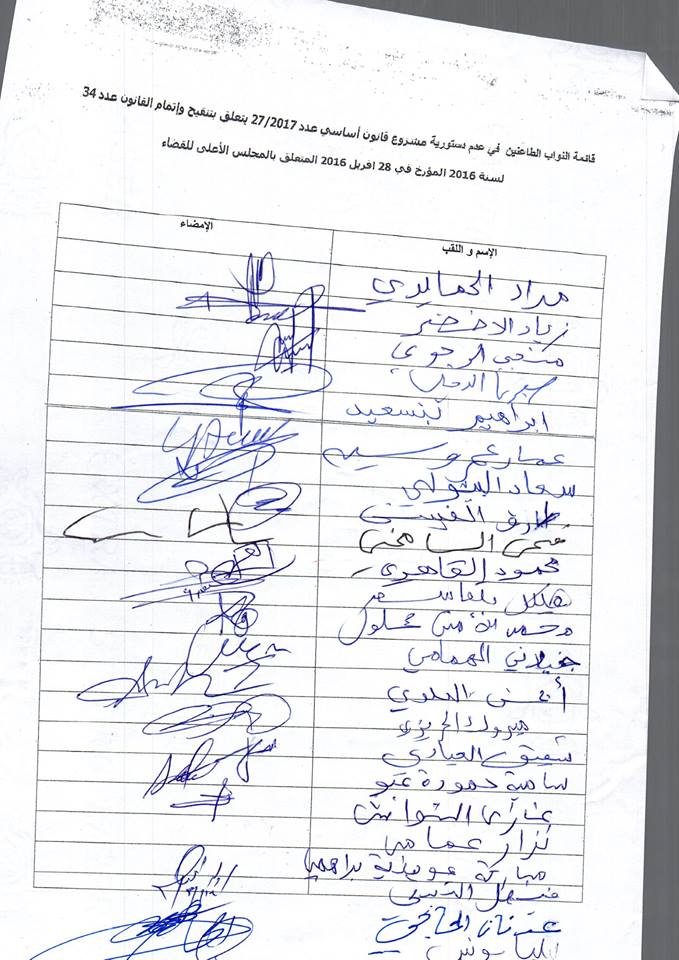 قائمة النواب الطاعنين في عدم دستورية مشروع قانون أساسي عدد 27/2017 يتعلق بتنقيح وإتمام القانون عدد 34
لسنة 2016 المؤرخ في 28 افريل 2016 المتعلق بالمجلس الأعلى للقضاء
الإسم و اللقب
الإمضاء
مراد الحمايدي
زياد الاخضر
منجي الرحوي
ابراهيم بنسعيد
عمار عمروسية
سعاد البيولي
طارق الفتيتي
فتحي الشامخي
محمود القاهري
هيكل بلقاسم
محمد الأمين كحلول
جيلاني الهمامي
أيمن العلوي
مبروك الحريزي
شفيق العيادي
سامية حمودة عبو
غازي الشواشي
نزار عمامي
مباركة عواينية براهمي
فيصل التبيني
عدنان الحاجي